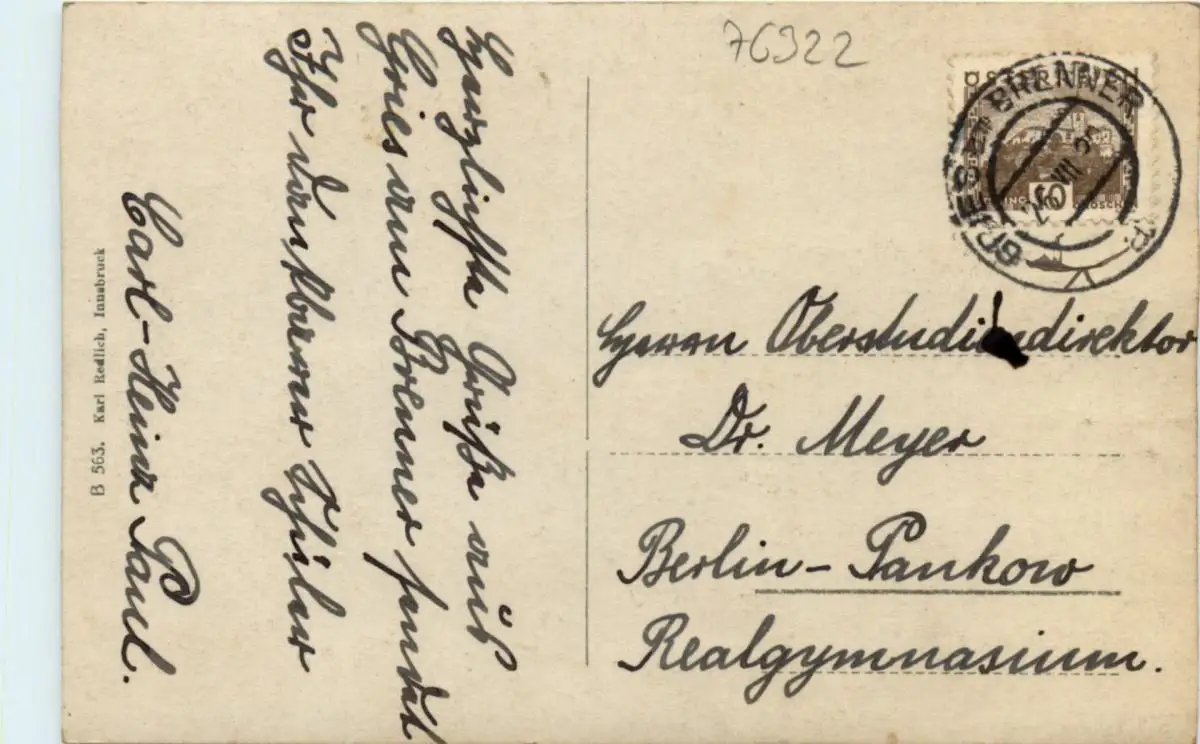 76922
ÖSTERREICH
GROSCHEN
GRIES AM BRENNER
26 VII 25
Herzlichste Grüße aus
Gries am Brenner sendet
Ihr dankbarer Schüler
Carl-Heinz Paul.
B 563. Karl Redlich, Innsbruck
Herrn Oberstudiendirektor
Dr. Meyer
Berlin-Pankow
Realgymnasium.